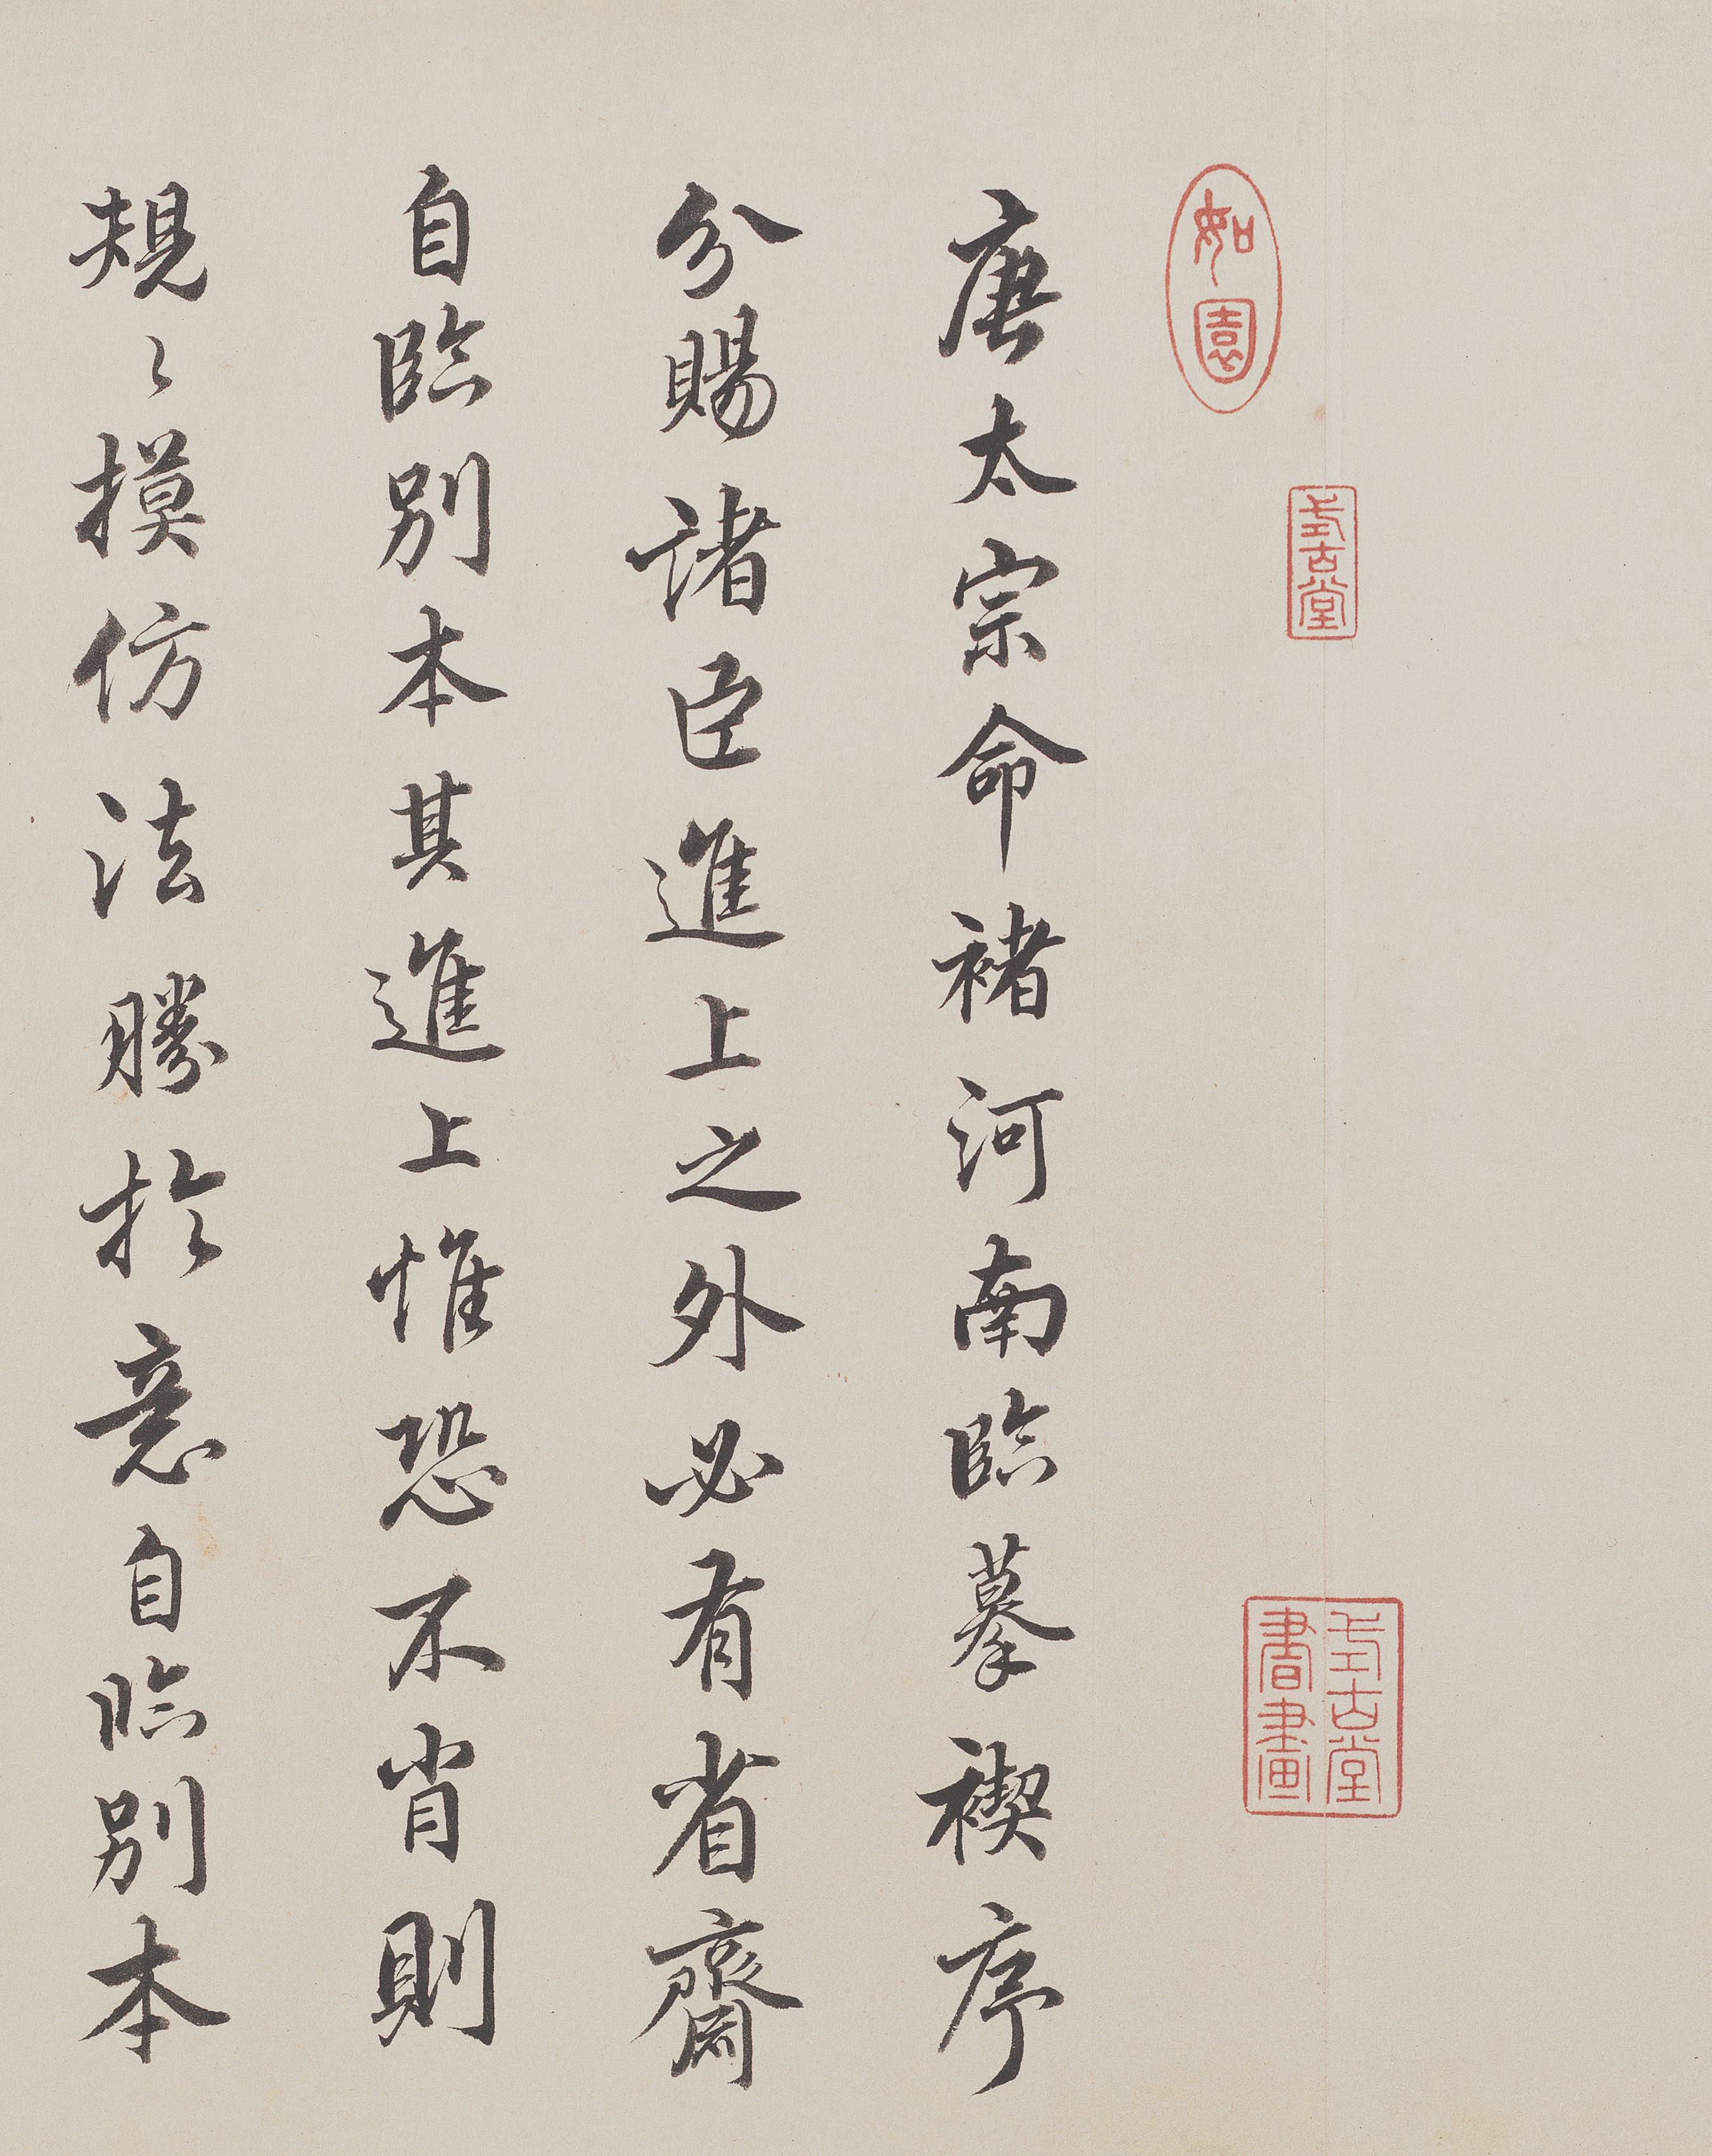 如園
式古堂
式古堂
書畫
唐太宗命褚河南臨摹禊序
分賜諸臣進上之外必有省齋
自臨別本其進上惟恐不肖則
規〻摸仿法勝於意自臨別本